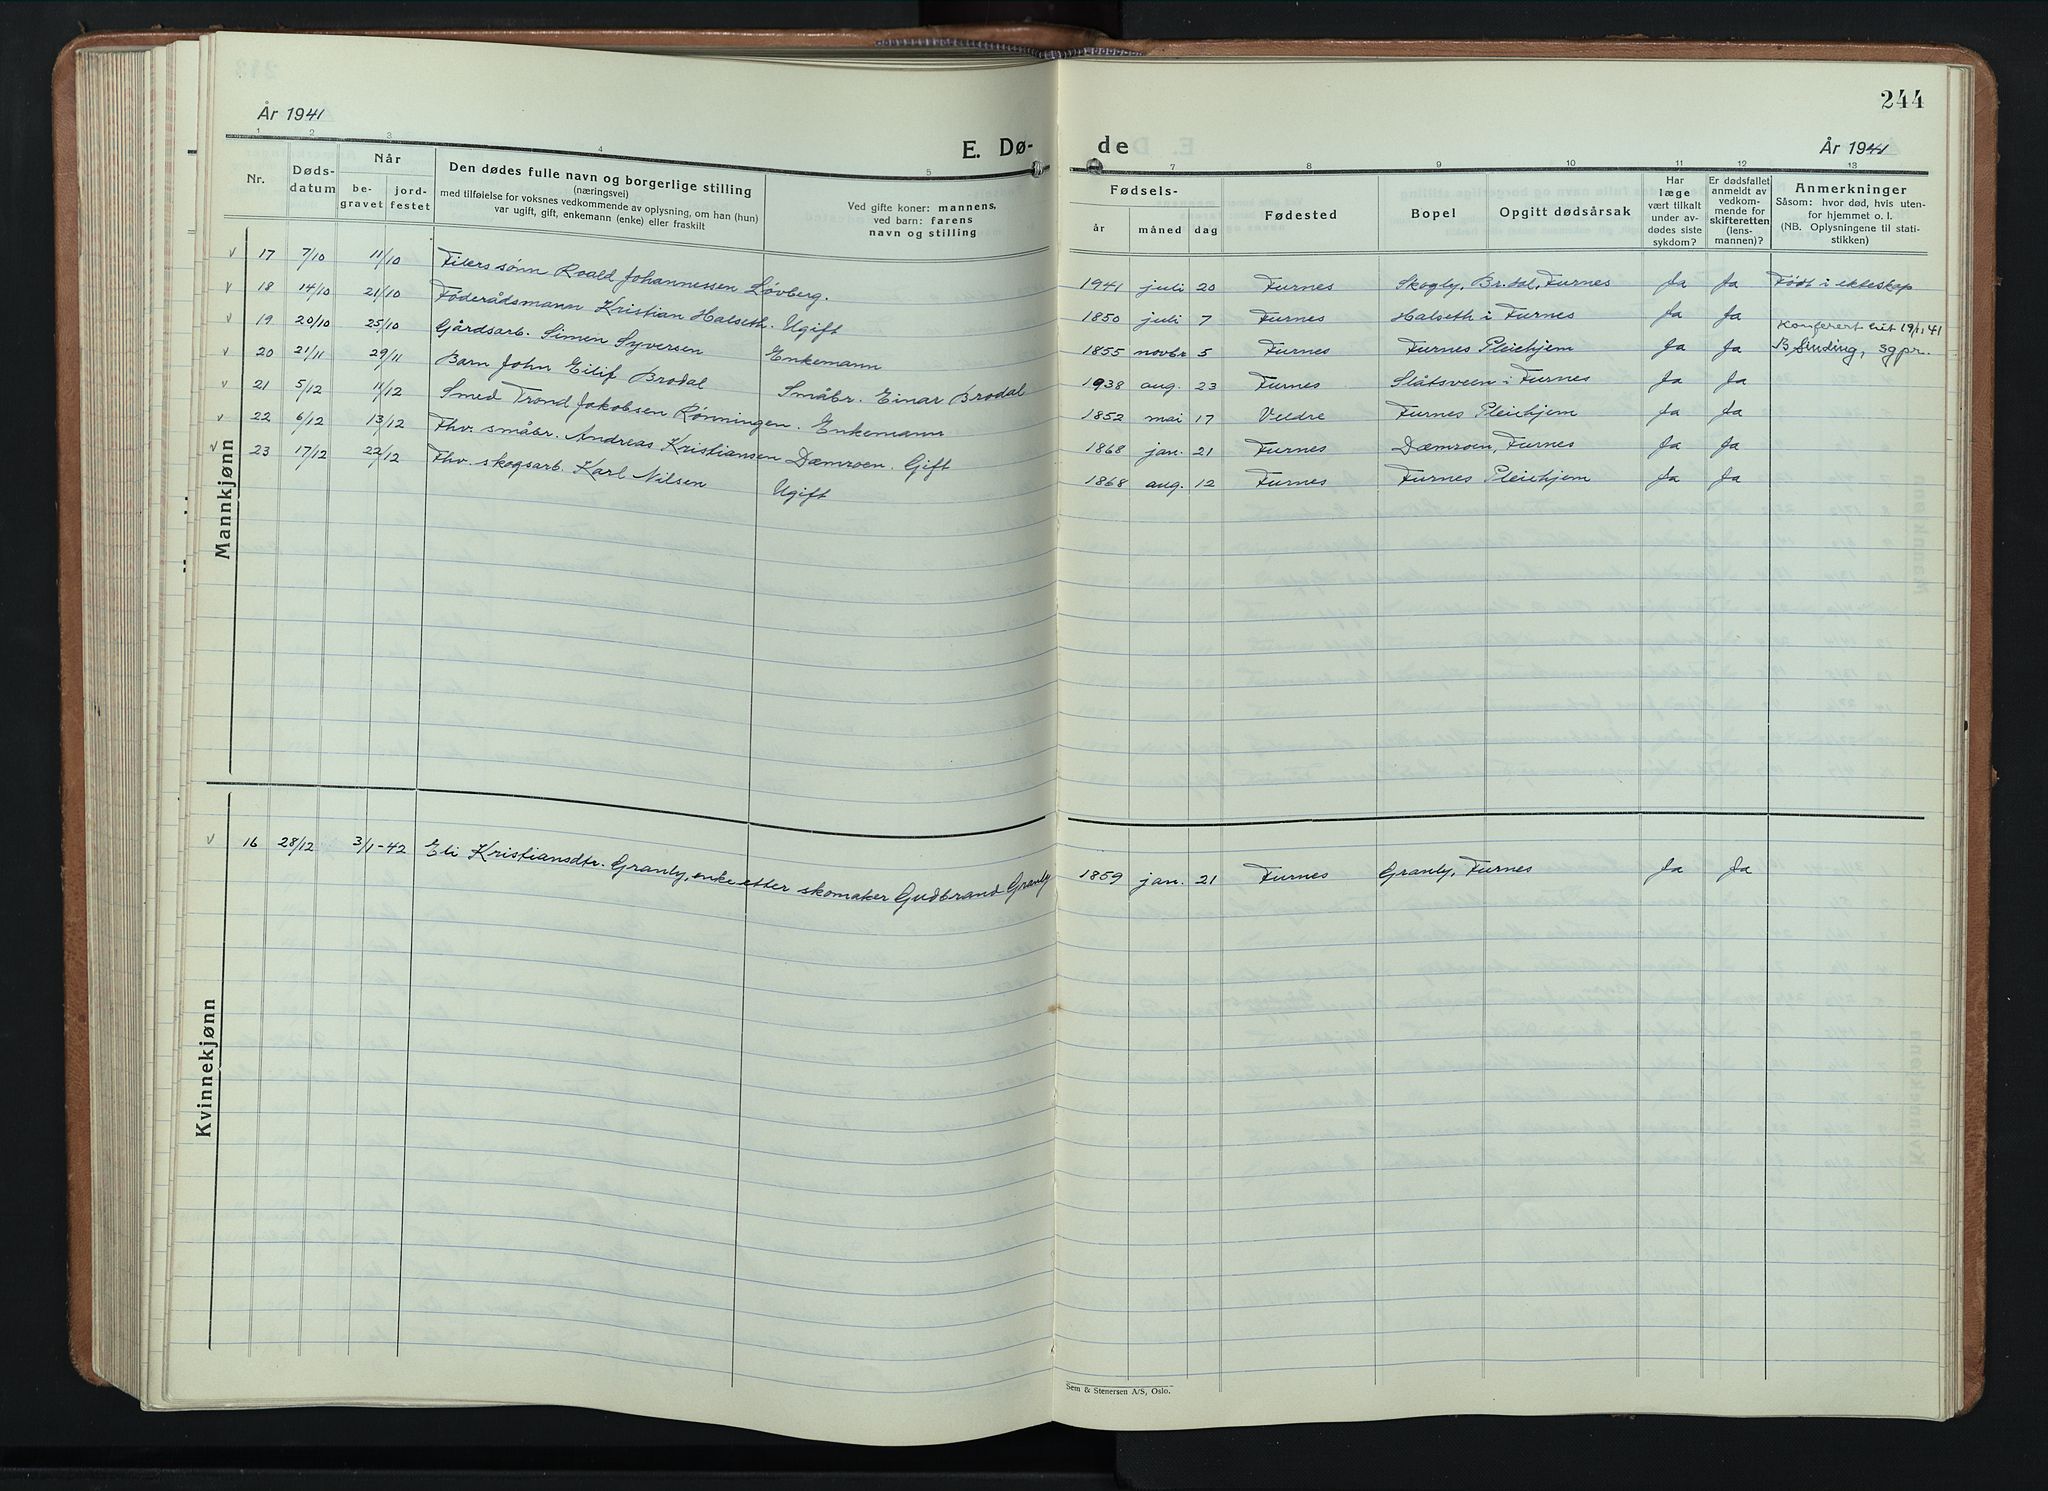 244
År 1941
E. Dø-
de
År 1941
1 2 3 4 5 7 8 9 10 11 12 13
Nr.
Døds-
datum
Når
be-
gravet
jord-
festet
Den dødes fulle navn og borgerlige stilling
(næringsvei)
med tilføielse for voksnes vedkommende av oplysning, om han (hun)
var ugift, gift, enkemann (enke) eller fraskilt
Ved gifte koner: mannens,
ved barn: farens
navn og stilling
Fødsels-
år
måned
dag
Fødested
Bopel
Opgitt dødsårsak
Har
læge
vært tilkalt
under av-
dødes siste
sykdom?
Er dødsfallet
anmeldt av
vedkom-
mende for
skifteretten
(lens-
mannen)?
Anmerkninger
Såsom: hvor død, hvis uten-
for hjemmet o. l.
(NB. Oplysningene til stati-
stikken)
Mannkjønn
v 17 7/10 11/10 Filers sønn Roald Johannessen Løvberg. 1941 juli 20 Furnes Skogly, Br.dal, Furnes Ja Ja Født i ekteskap
v 18 14/10 21/10 Føderådsmann Kristian Halseth. Ugift 1850 juli 7 Furnes Halseth i Furnes Ja Ja
Konferert hit 19/11 41
v 19 20/10 25/10 Gårdsarb. Simen Syversen Enkemann 1855 novbr 5 Furnes Furnes Pleiehjem Ja Ja B Sinding, sgpr.
v 20 21/11 29/11 Barn John Eilif Brodal Småbr. Einar Brodal 1938 aug. 23 Furnes Slåtsveen i Furnes Ja Ja
v 21 5/12 11/12 Smed Trond Jakobsen Rønningen. Enkemann 1852 mai 17 Veldre Furnes Pleiehjem Ja Ja
v 22 6/12 13/12 Fhv. småbr. Andreas Kristiansen Dæmroen. Gift 1868 jan. 21 Furnes Dæmroen, Furnes Ja Ja
v 23 17/12 22/12 Fhv. skogsarb. Karl Nilsen Ugift 1868 aug. 12 Furnes Furnes Pleiehjem Ja Ja
Kvinnekjønn
v 16 28/12 3/1-42 Eli Kristiansdtr. Granly, enke etter skomaker Gudbrand Granly 1859 jan. 21 Furnes Granly, Furnes Ja Ja
Sem & Stenersen A/S, Oslo.